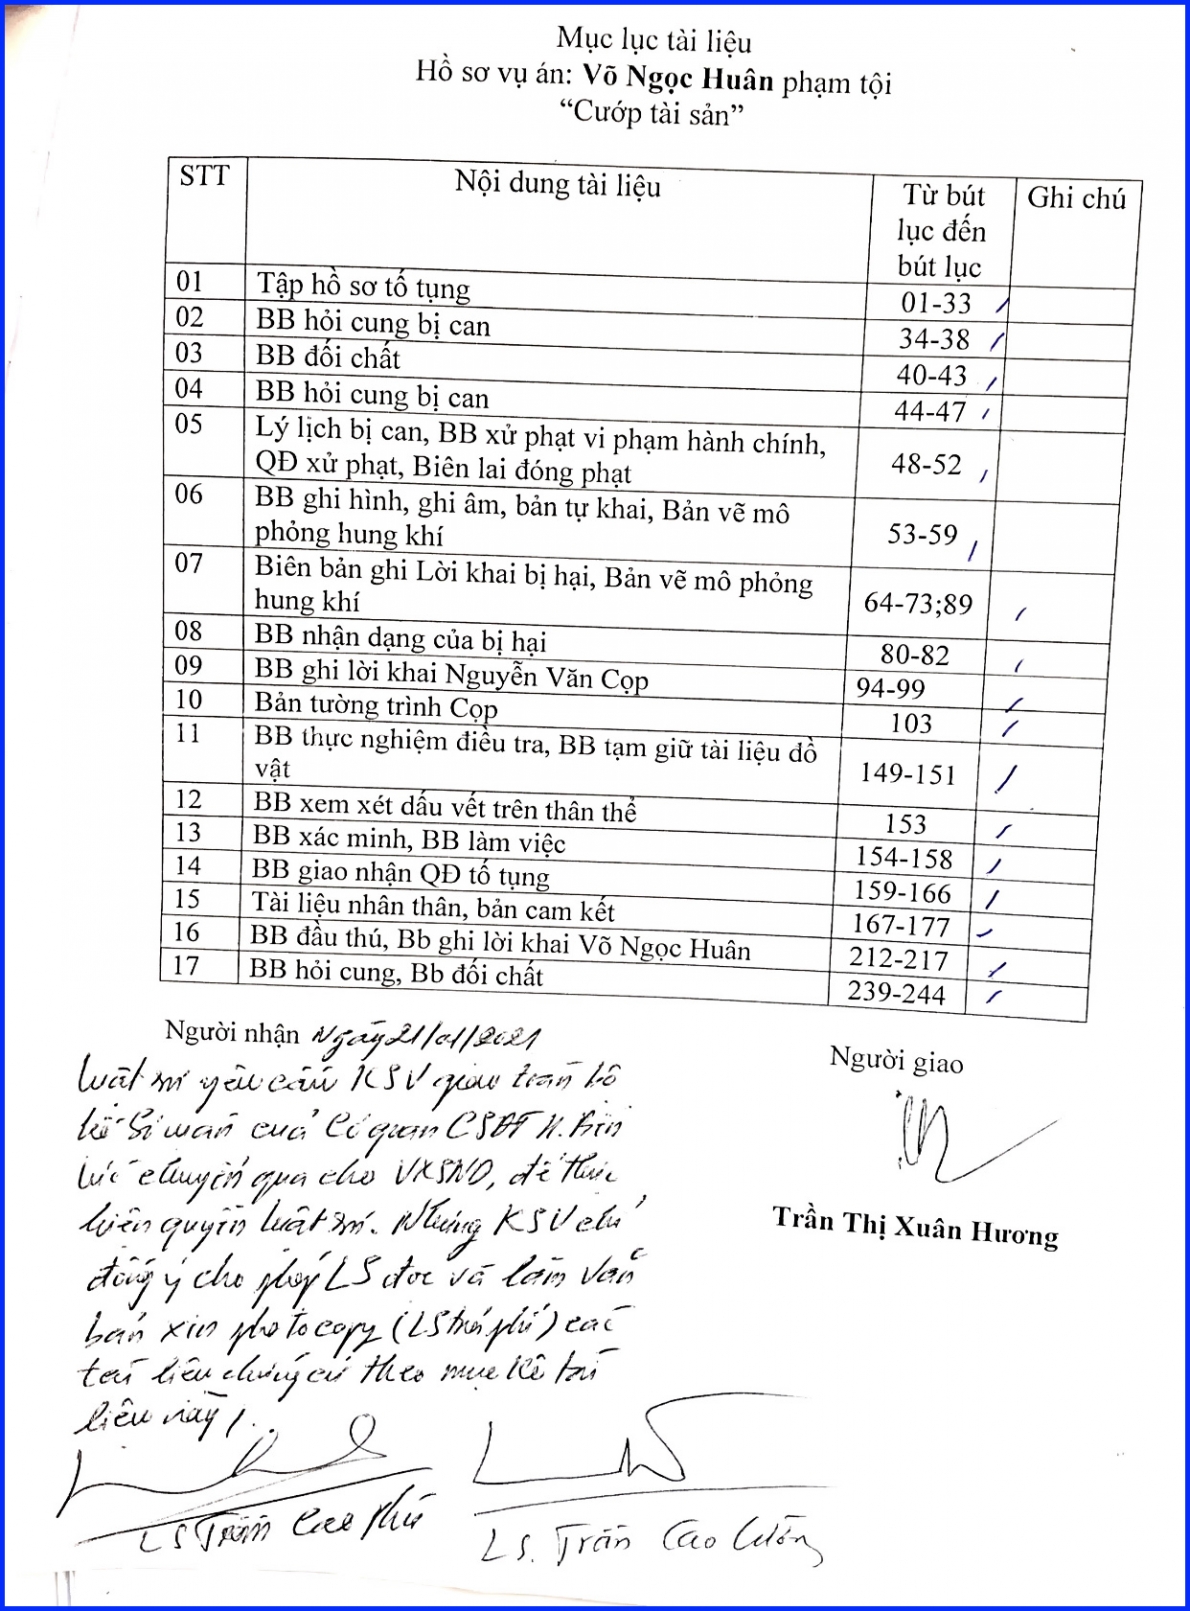 Mục lục tài liệu
Hồ sơ vụ án: Võ Ngọc Huân phạm tội
“Cướp tài sản”
STT Nội dung tài liệu Từ bút lục đến bút lục Ghi chú
01 Tập hồ sơ tố tụng 01-33
02 BB hỏi cung bị can 34-38
03 BB đối chất 40-43
04 BB hỏi cung bị can 44-47
05 Lý lịch bị can, BB xử phạt vi phạm hành chính,
QĐ xử phạt, Biên lai đóng phạt 48-52
06 BB ghi hình, ghi âm, bản tự khai, Bản vẽ mô
phỏng hung khí 53-59
07 Biên bản ghi Lời khai bị hại, Bản vẽ mô phỏng
hung khí 64-73;89
08 BB nhận dạng của bị hại 80-82
09 BB ghi lời khai Nguyễn Văn Cọp 94-99
10 Bản tường trình Cọp 103
11 BB thực nghiệm điều tra, BB tạm giữ tài liệu đồ
vật 149-151
12 BB xem xét dấu vết trên thân thể 153
13 BB xác minh, BB làm việc 154-158
14 BB giao nhận QĐ tố tụng 159-166
15 Tài liệu nhân thân, bản cam kết 167-177
16 BB đầu thú, Bb ghi lời khai Võ Ngọc Huân 212-217
17 BB hỏi cung, Bb đối chất 239-244
Người nhận Ngày 21/01/2021
Người giao
Luật sư yêu cầu KSV giao toàn bộ
hồ sơ vụ án của Cơ quan CSĐT H. Bến
Lức chuyển qua cho VKSND, để thực
hiện quyền luật sư. Nhưng KSV chỉ
đồng ý cho phép LS đọc và làm văn
bản xin photocopy (LS trả phí) các
tài liệu chứng cứ theo mục kê tài
liệu này /.
Trần Thị Xuân Hương
LS Trần Cao Phú
LS. Trần Cao